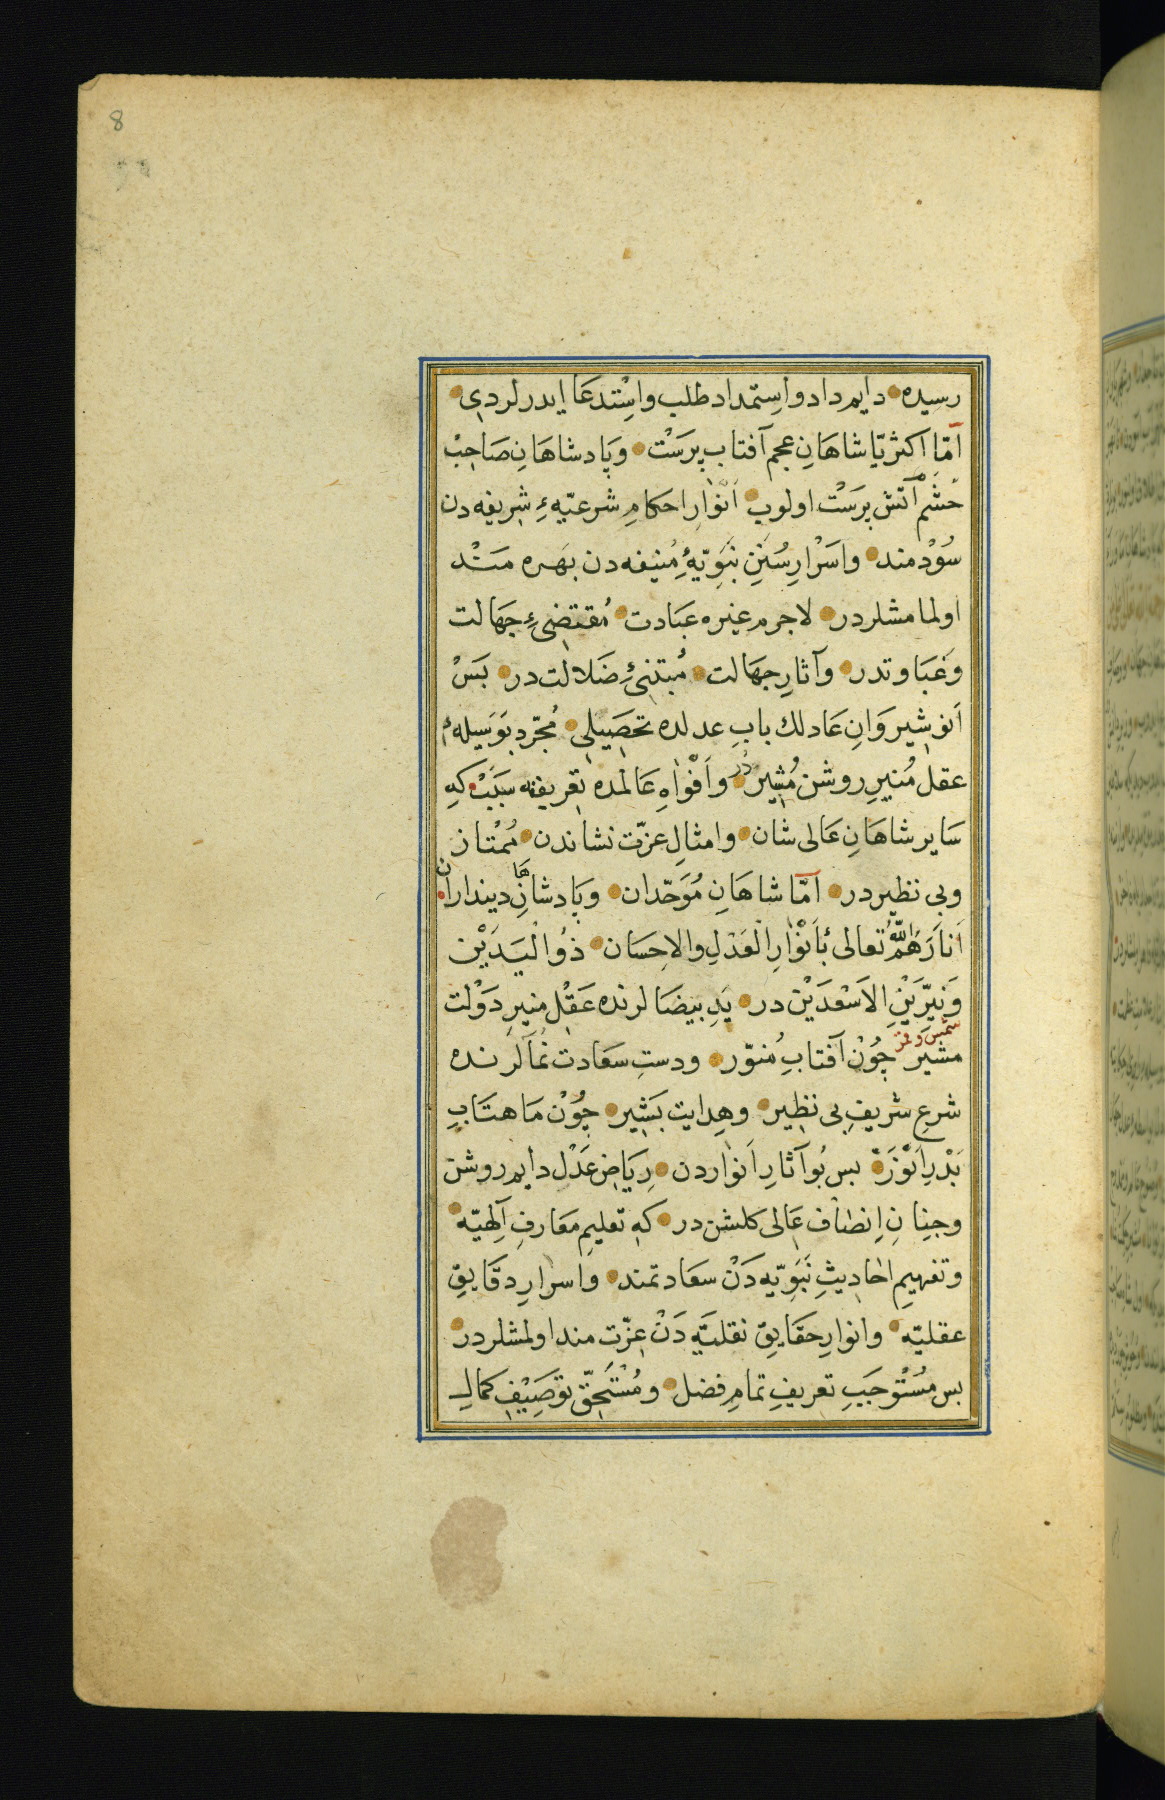 8
رسیده دایم داد و اِستمداد طلب و اِسْتدعَا ایدرلردی
آمّا اکثر یّا شاهَانِ عجم آفتاب پرَسْت وپَادشاهَانِ صَاحِبْ
حُشَمْ آتش پرَسْت اولوب اَنْوَارِ احکامِ شرعیّهءِ شریفه دن
سُوْدمند واَسْرارِ سُنَنِ نبَوِیّهٔ مُنیفه دن بهَره مَنْد
اولمامشلردر لاجرم غیره عبَادت مُقتضئِ جَهَالت
وغَبَاوتدر وآثارِ جهَالت مُبتنیٔ ضَلالت در بَسْ
اَنوشِیروَانِ عَادلك بابِ عدلده تحصَیلِی مُجَرّد بوَسَیلهٔ
عقلِ مُنیرِ روشن مُشِیر در واَفْوَاهِ عَالمده تعریفنه سَبَبْ کهِ
سَایر شاهَانِ عَالی شان وامثالِ عزّت نشاندن مُمْتاز
وبی نظیردر آمّا شاهَانِ مُوَحّدان وپَادشاهَانِ دینداران
اَنارَهُمُ اللّهُ تعالی بأَنْوَارِ الْعَدْلِ والاحِسَان ذُوالْیَدَیْن
وَنیّرَیْنِ الاَسْعَدَیْن در یَدِ بیضَالرنده عَقْلِ منیرِ دَوْلت
مشیَر شمس و قمر چُوْن آفتابِ مُنوّر ودستِ سعَادت نُمَالَرنده
شرعِ شریفِ بی نظِیر وهِدایت بَشیر چُوْن مَاهتَابِ
بَدْرِ اَنْوَرَ بس بُو آثارِ اَنوَاردن رِیَاضِ عَدْل دایم روشن
وجنِانِ اِنطاف عَالی کلشن در که تعلیمِ مَعَارفِ اَلٰهیّه
وتفهیمِ احَادیثِ نَبَوِیّه دَنْ سعَادتمند واسرارِ دقَایقِ
عقلیّه وانوارِ حقَایقِ نقلیّه دَنْ عِزّت مند اولمشلردر
بس مُسْتوجبِ تعریفِ تمامِ فضل ومُسْتَحِقّ توصَیْفِ کمالِ